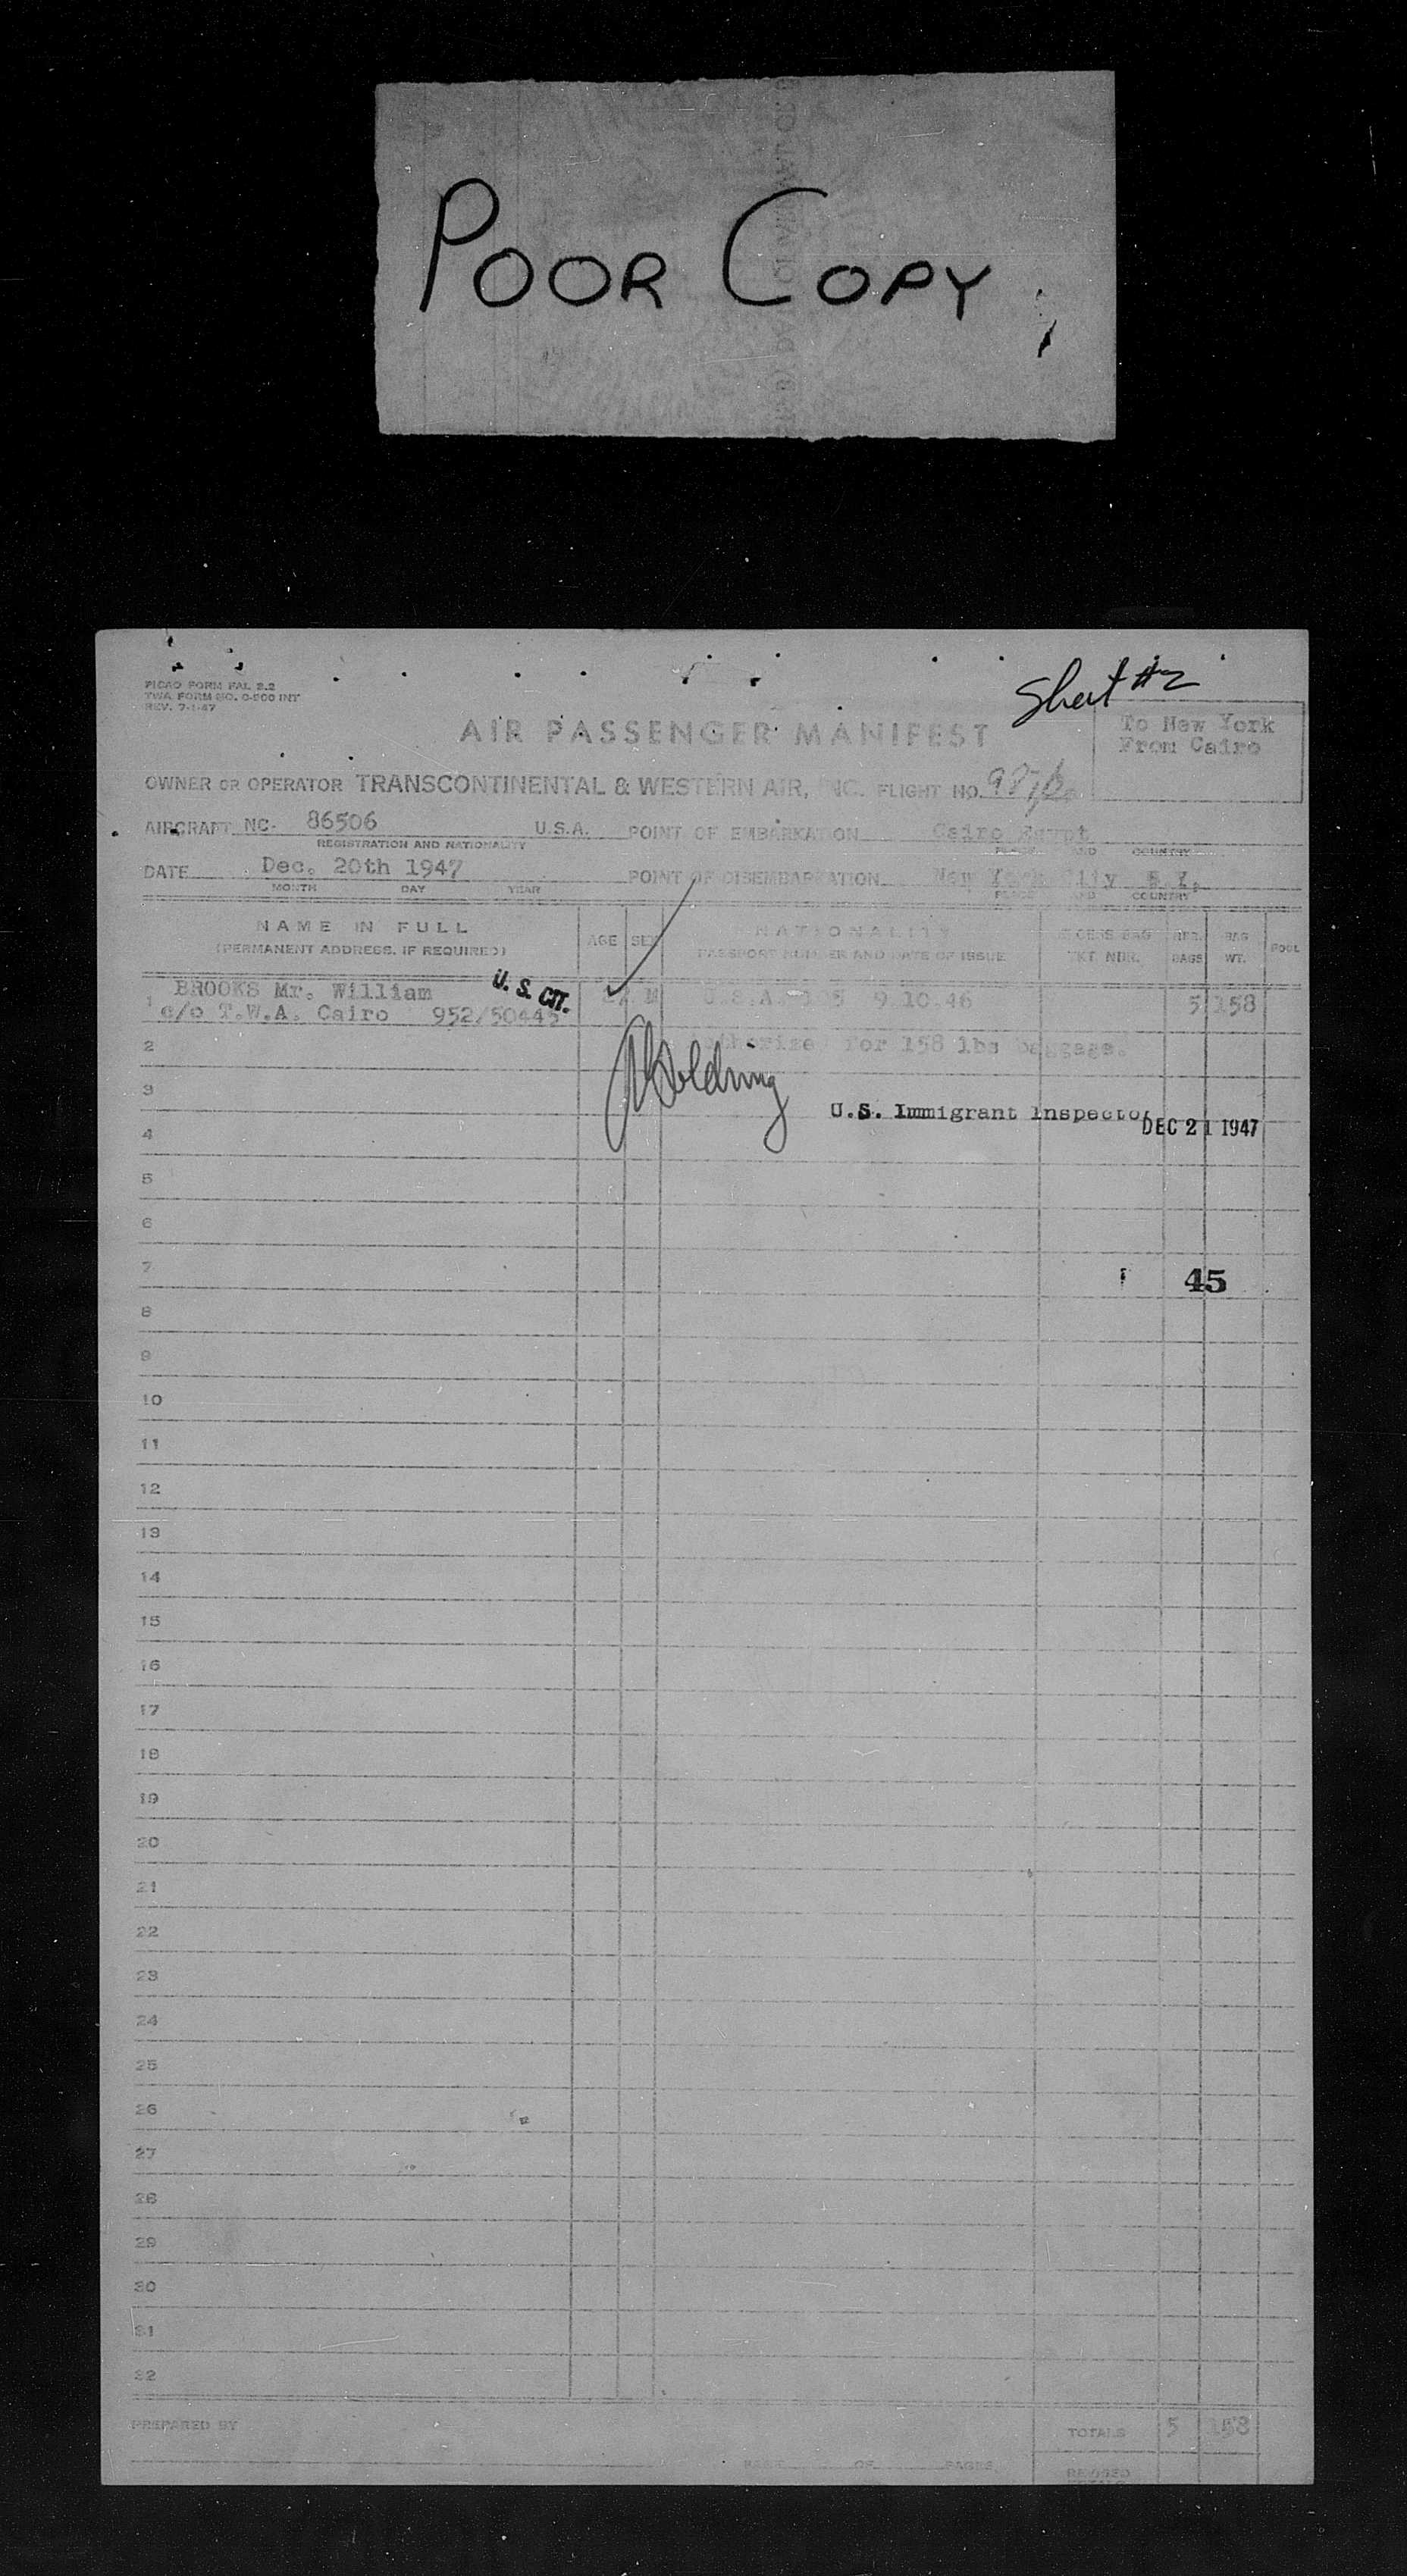 POOR COPY
Sheet #2
PICAO FORM FAL 2.2
TWA FORM NO. O-500 INT
REV. 7-1-47
AIR PASSENGER MANIFEST
To New York
From Cairo
OWNER OR OPERATOR TRANSCONTINENTAL & WESTERN AIR, INC. FLIGHT NO.
AIRCRAFT NC- 86506 U.S.A. POINT OF EMBARKATION Cairo Egypt
REGISTRATION AND NATIONALITY PLACE AND COUNTRY
DATE Dec. 20th 1947 POINT OF DISEMBARKATION New York City N.Y.
MONTH DAY YEAR PLACE AND COUNTRY
NAME IN FULL AGE SEX NATIONALITY EXCESS BAG NBR. BAG POOL
(PERMANENT ADDRESS, IF REQUIRED) PASSPORT NUMBER AND DATE OF ISSUE TKT. NBR. BAGS WT.
BROOKS Mr. William U. S. CIT. M U.S.A. 9.10.46 5 158
1 c/o T.W.A. Cairo 952/50445
2 Authorized for 158 lbs baggage.
3
U.S. Immigrant Inspector
DEC 21 1947
4
5
6
7 45
8
9
10
11
12
13
14
15
16
17
18
19
20
21
22
23
24
25
26
27
28
29
30
31
32
PREPARED BY TOTALS 5 158
PAGE OF PAGES REVISED
TOTALS